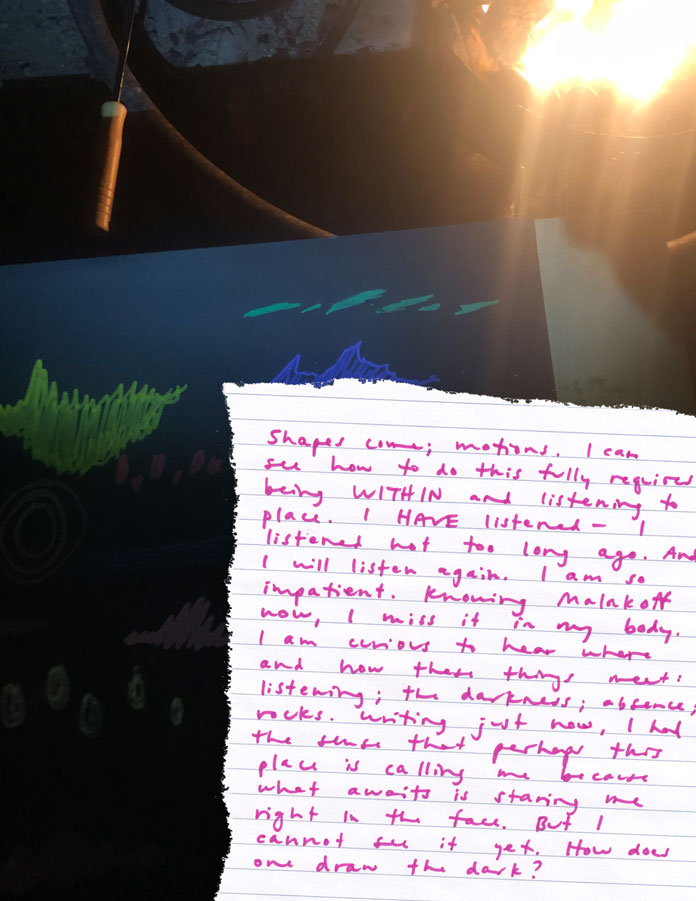 Shapes come; motions. I can
see how to do this fully requires
being WITHIN and listening to
place. I HAVE listened – I
listened not too long ago. And
I will listen again. I am so
impatient. Knowing Malakoff
now, I miss it in my body.
I am curious to hear where
and how these things meet:
listening; the darkness; absence;
rocks. Writing just now, I had
the sense that perhaps this
place is calling me because
what awaits is staring me
right in the face. But I
cannot see it yet. How does
one draw the dark?